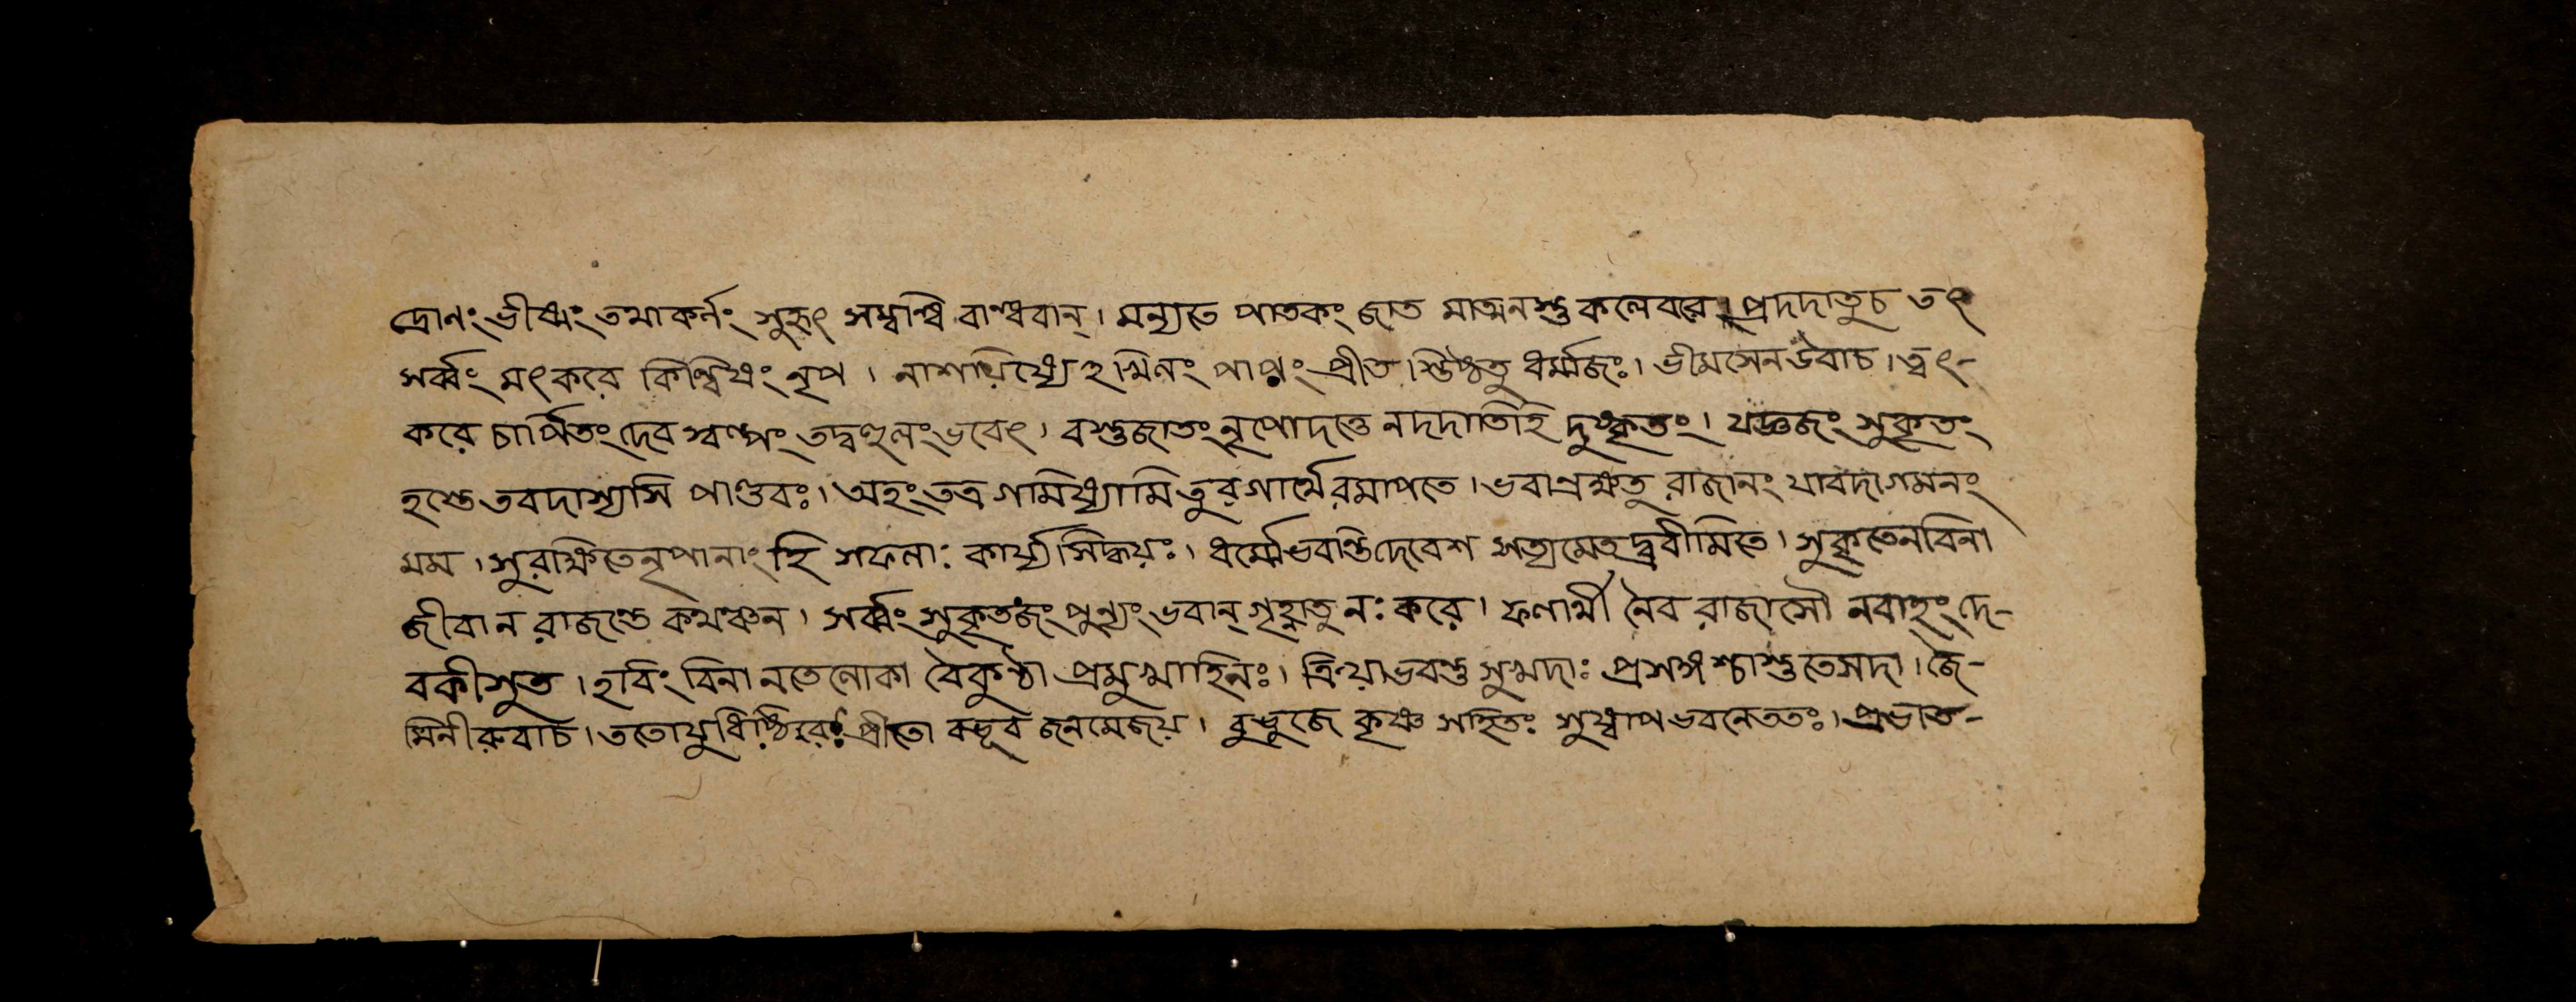 দ্রোণং ভীষ্মং তথাকর্নং সুহৃৎ সম্বন্ধি বান্ধবান্। মন্যতে পাতকং জাত মাত্মনস্তু কলেবরে। প্রদদাতুচ তৎ
সর্ব্বং মৎকরে কিল্বিষং নৃপ। নাশয়িষ্যেহমিলং পাপং প্রীত স্তিষ্ঠতু ধর্ম্মজঃ। ভীমসেনউবাচ। ত্বৎ-
করে চার্পিতং দেব স্বল্পং তদ্বহুলংভবেৎ। বস্তুজাতং নৃপোদত্তে নদদাতিহি দুষ্কৃতং। যজ্ঞজং সুকৃতং
হস্তে তবদাস্যাসি পাণ্ডবঃ। অহং তত্র গমিষ্যামি তুরগার্থেরমাপতে। ভবান্রক্ষতু রাজানং যাবদাগমনং
মম। সুরক্ষিতেনৃপানাং হি সফলাঃ কার্য্যসিদ্ধয়ঃ। ধর্ম্মোভবান্তিদেবেশ সত্যমেতদ্ব্রবীমিতে। সুকৃতেনবিনা
জীবান রাজন্তে কথঞ্চন। সর্ব্বং সুকৃতজং পুন্যং ভবান্ গৃহ্নাতু নঃ করে। ফলার্থী নৈব রাজাসৌ নবাহং দে-
বকীসুত। হবিং বিনা নতেলোকা বৈকুণ্ঠা প্রমুখাহিনঃ। ক্রিয়াভবন্তু সুখদাঃ প্রসঙ্গশ্চাস্তুতেসদা। জৈ-
মিনীরুবাচ। ততোযুধিষ্ঠিরো প্রীতো বভূব জনমেজয়। বুভুজে কৃষ্ণ সহিতঃ সুষ্বাপভবনেততঃ। প্রভাত-